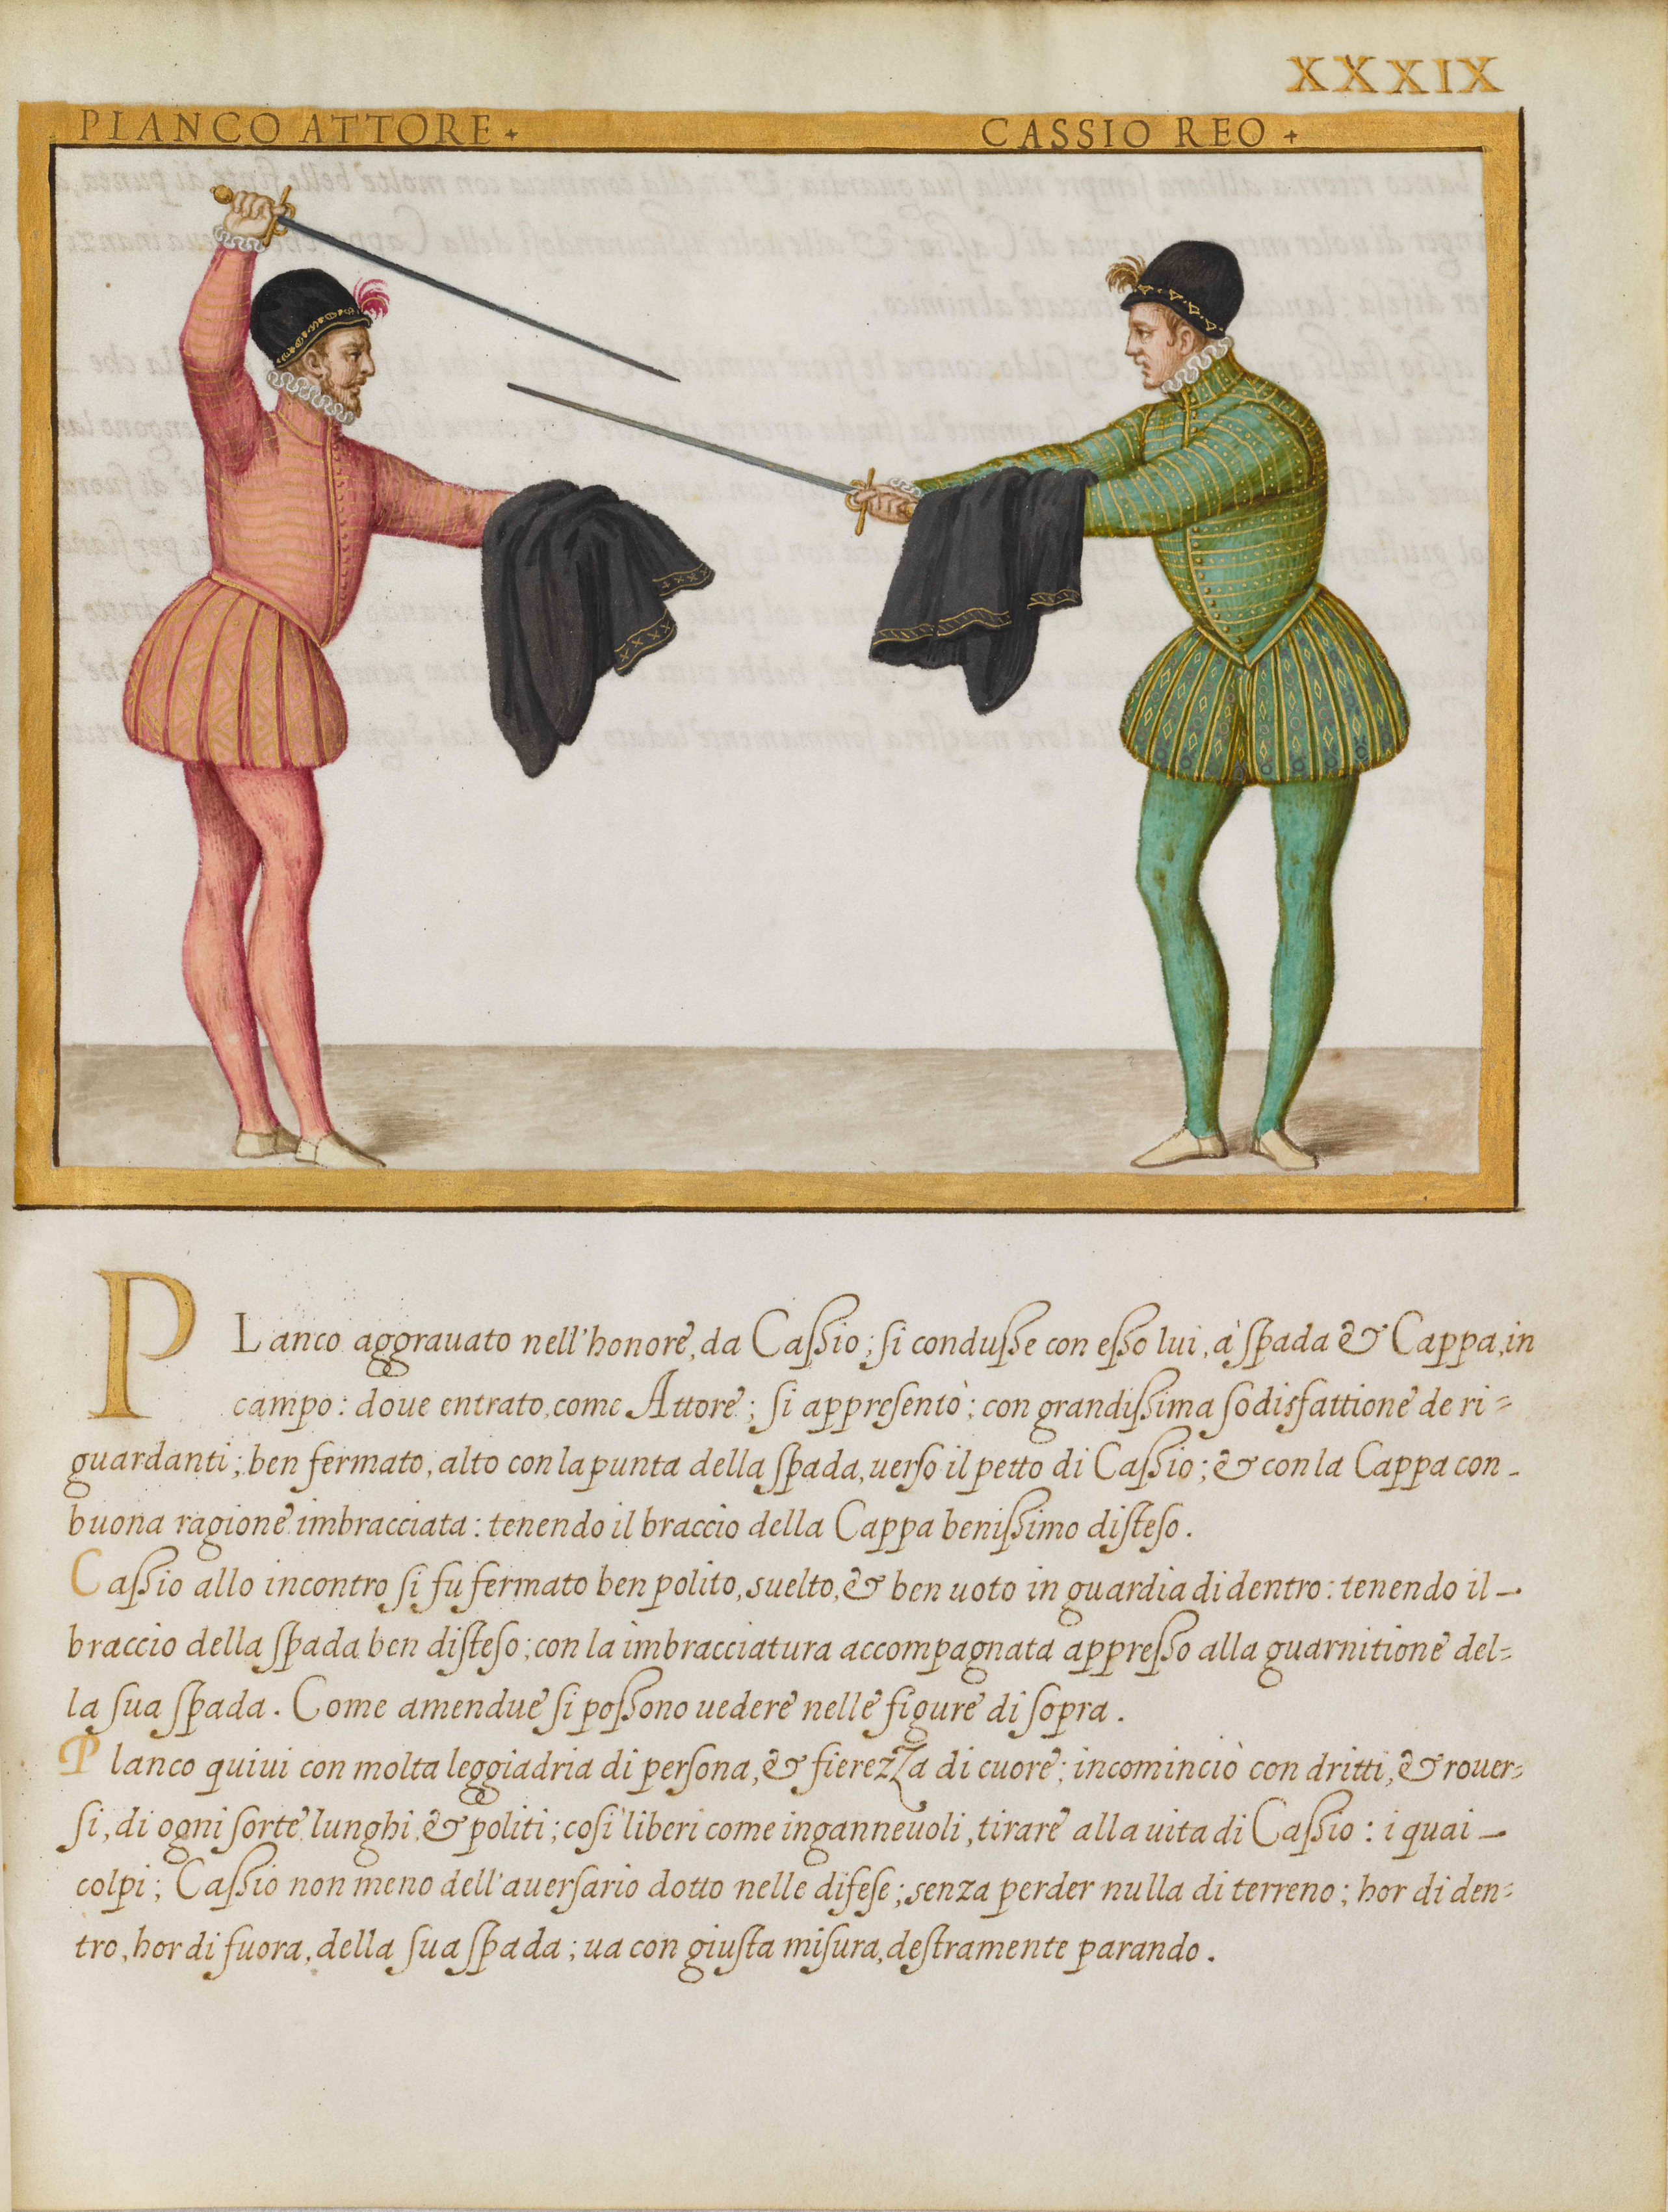 XXXIX
PLANCO ATTORE
CASSIO REO
PLanco aggrauato nell'honore, da Caſſio; ſi conduſſe con eſſo lui, à ſpada & Cappa, in
campo: doue entrato, come Attore; ſi appreſentò; con grandiſſima ſodisfattione de ri=
guardanti; ben fermato, alto con la punta della ſpada, uerſo il petto di Caſſio; & con la Cappa con
buona ragione imbracciata: tenendo il braccio della Cappa beniſſimo diſteſo.
Caſſio allo incontro ſi fu fermato ben polito, suelto, & ben uoto in guardia di dentro: tenendo il
braccio della ſpada ben diſteſo; con la imbracciatura accompagnata appreſſo alla guarnitione del=
la ſua ſpada. Come amendue ſi poſſono uedere nelle figure di ſopra.
Planco quiui con molta leggiadria di perſona, & fierezza di cuore; incominciò con dritti, & rouer=
ſi, di ogni ſorte lunghi, & politi; coſi liberi come inganneuoli, tirare alla uita di Caſſio: i quai
colpi; Caſſio non meno dell'auerſario dotto nelle difeſe; senza perder nulla di terreno; hor di den=
tro, hor di fuora, della ſua ſpada; ua con giuſta miſura, deſtramente parando.